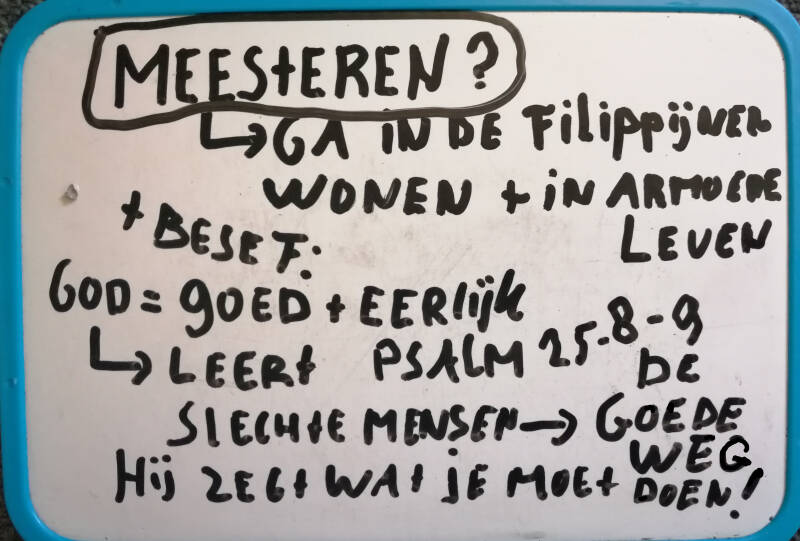 MEESTEREN?
↳ GA IN DE FILIPPIJNEN
WONEN + IN ARMOEDE
LEVEN
+ BESEF:
GOD = GOED + EERLIJK
↳ LEERT PSALM 25-8-9
DE
SLECHTE MENSEN → GOEDE
WEG
HIJ ZEGT WAT JE MOET DOEN!